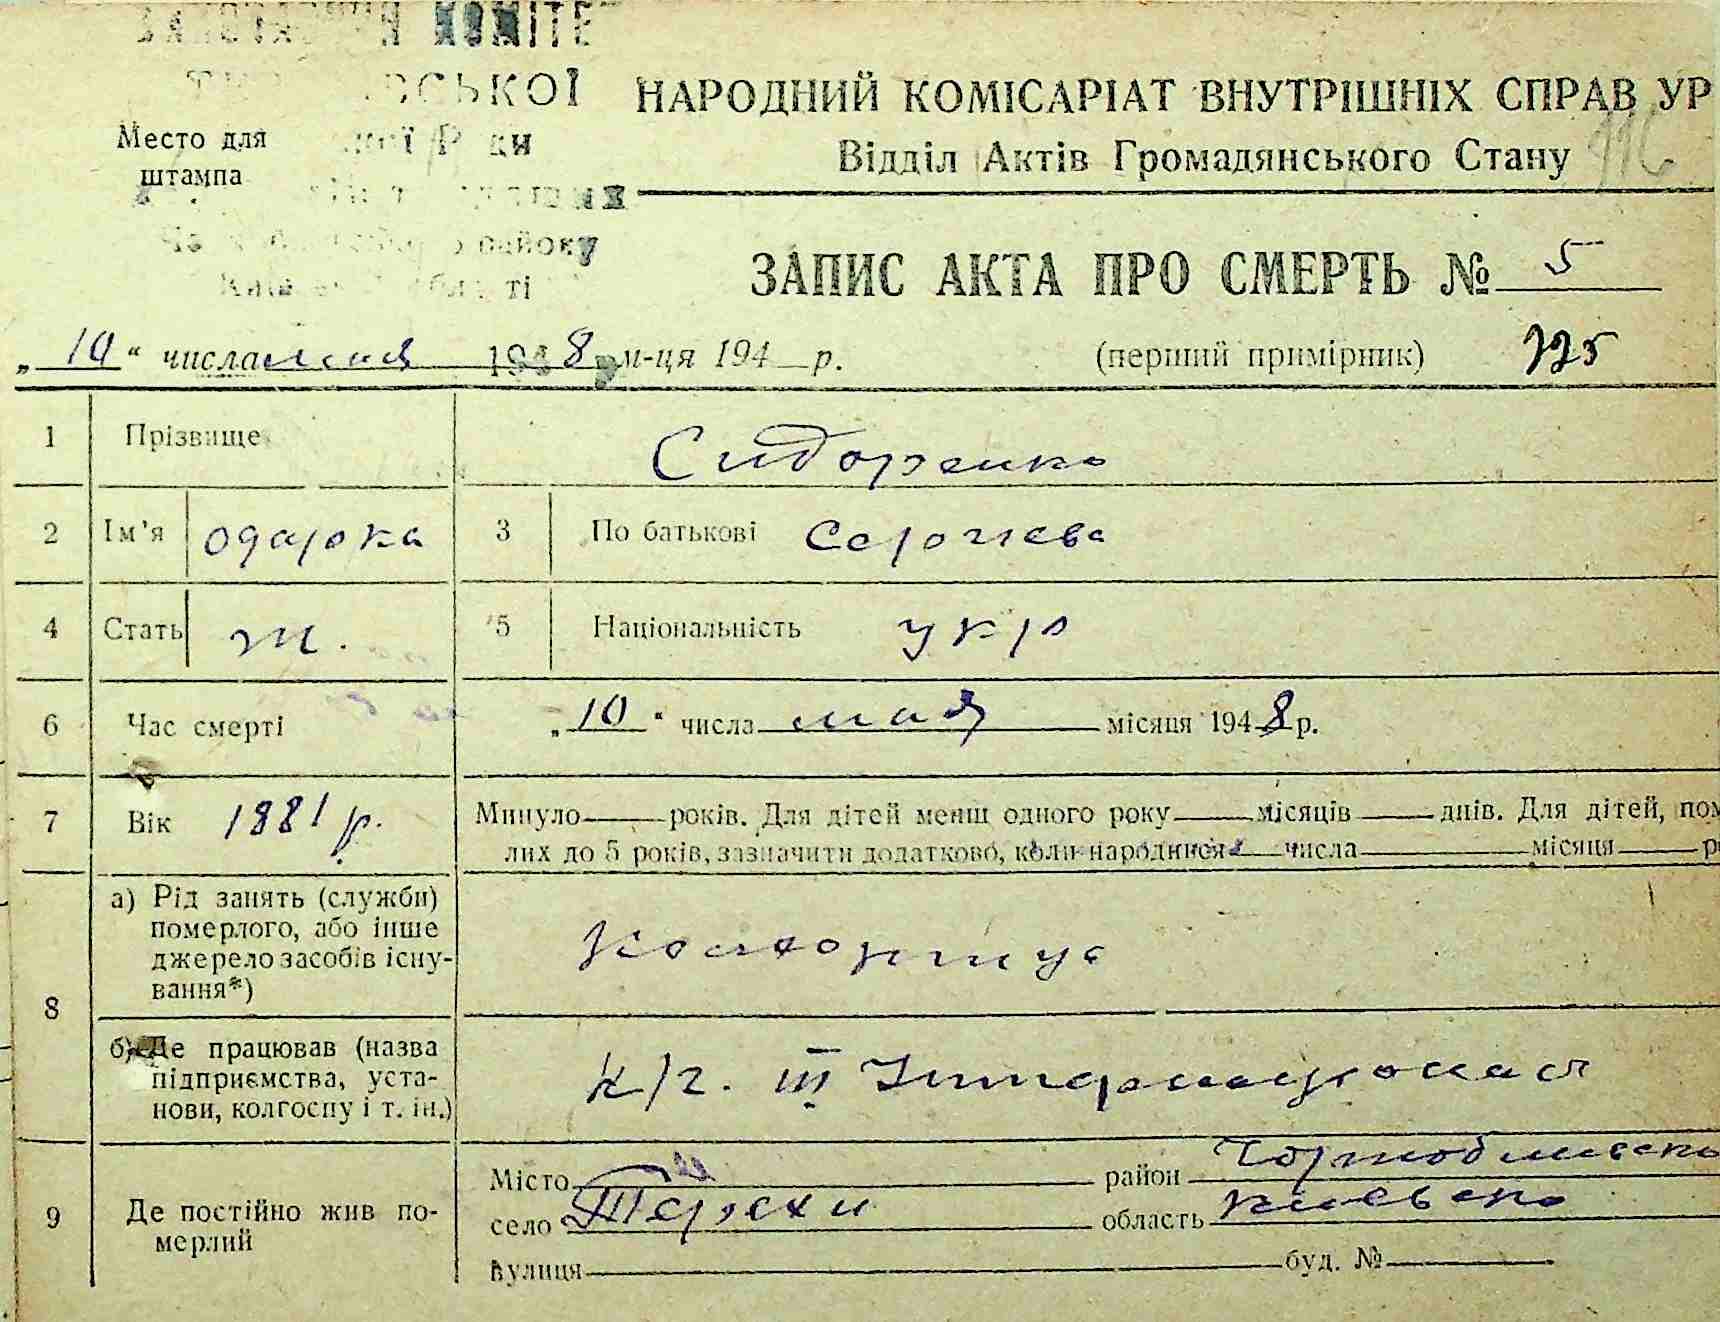 КОМІТЕ
СЬКОЇ
НАРОДНИЙ КОМІСАРІАТ ВНУТРІШНІХ СПРАВ УР
Место для
штампа
Відділ Актів Громадянського Стану
116
району
ЗАПИС АКТА ПРО СМЕРТЬ № 5
„10“ числа мая 1948 м-ця 194 р. (перший примірник) 225
1 Прізвище Сидоренко
2 Ім'я Одарка 3 По батькові Сергіева
4 Стать ж. 5 Національність укр
6 Час смерті „10“ числа мая місяця 1948 р.
7 Вік 1881 р. Минуло року. Для дітей менш одного року місяців днів. Для дітей, пом
лих до 5 років, зазначити додатково, коли народився числа місяця р
8 а) Рід занять (служби)
померлого, або інше
джерело засобів існу-
вання*)
Колгоспниця
б) Де працював (назва
підприємства, уста-
нови, колгоспу і т. ін.)
К/г. III Інтернаціонал
9 Де постійно жив по-
мерлий
Місто район Чорнобильско
село Терехи область Киевско
вулиця буд. №